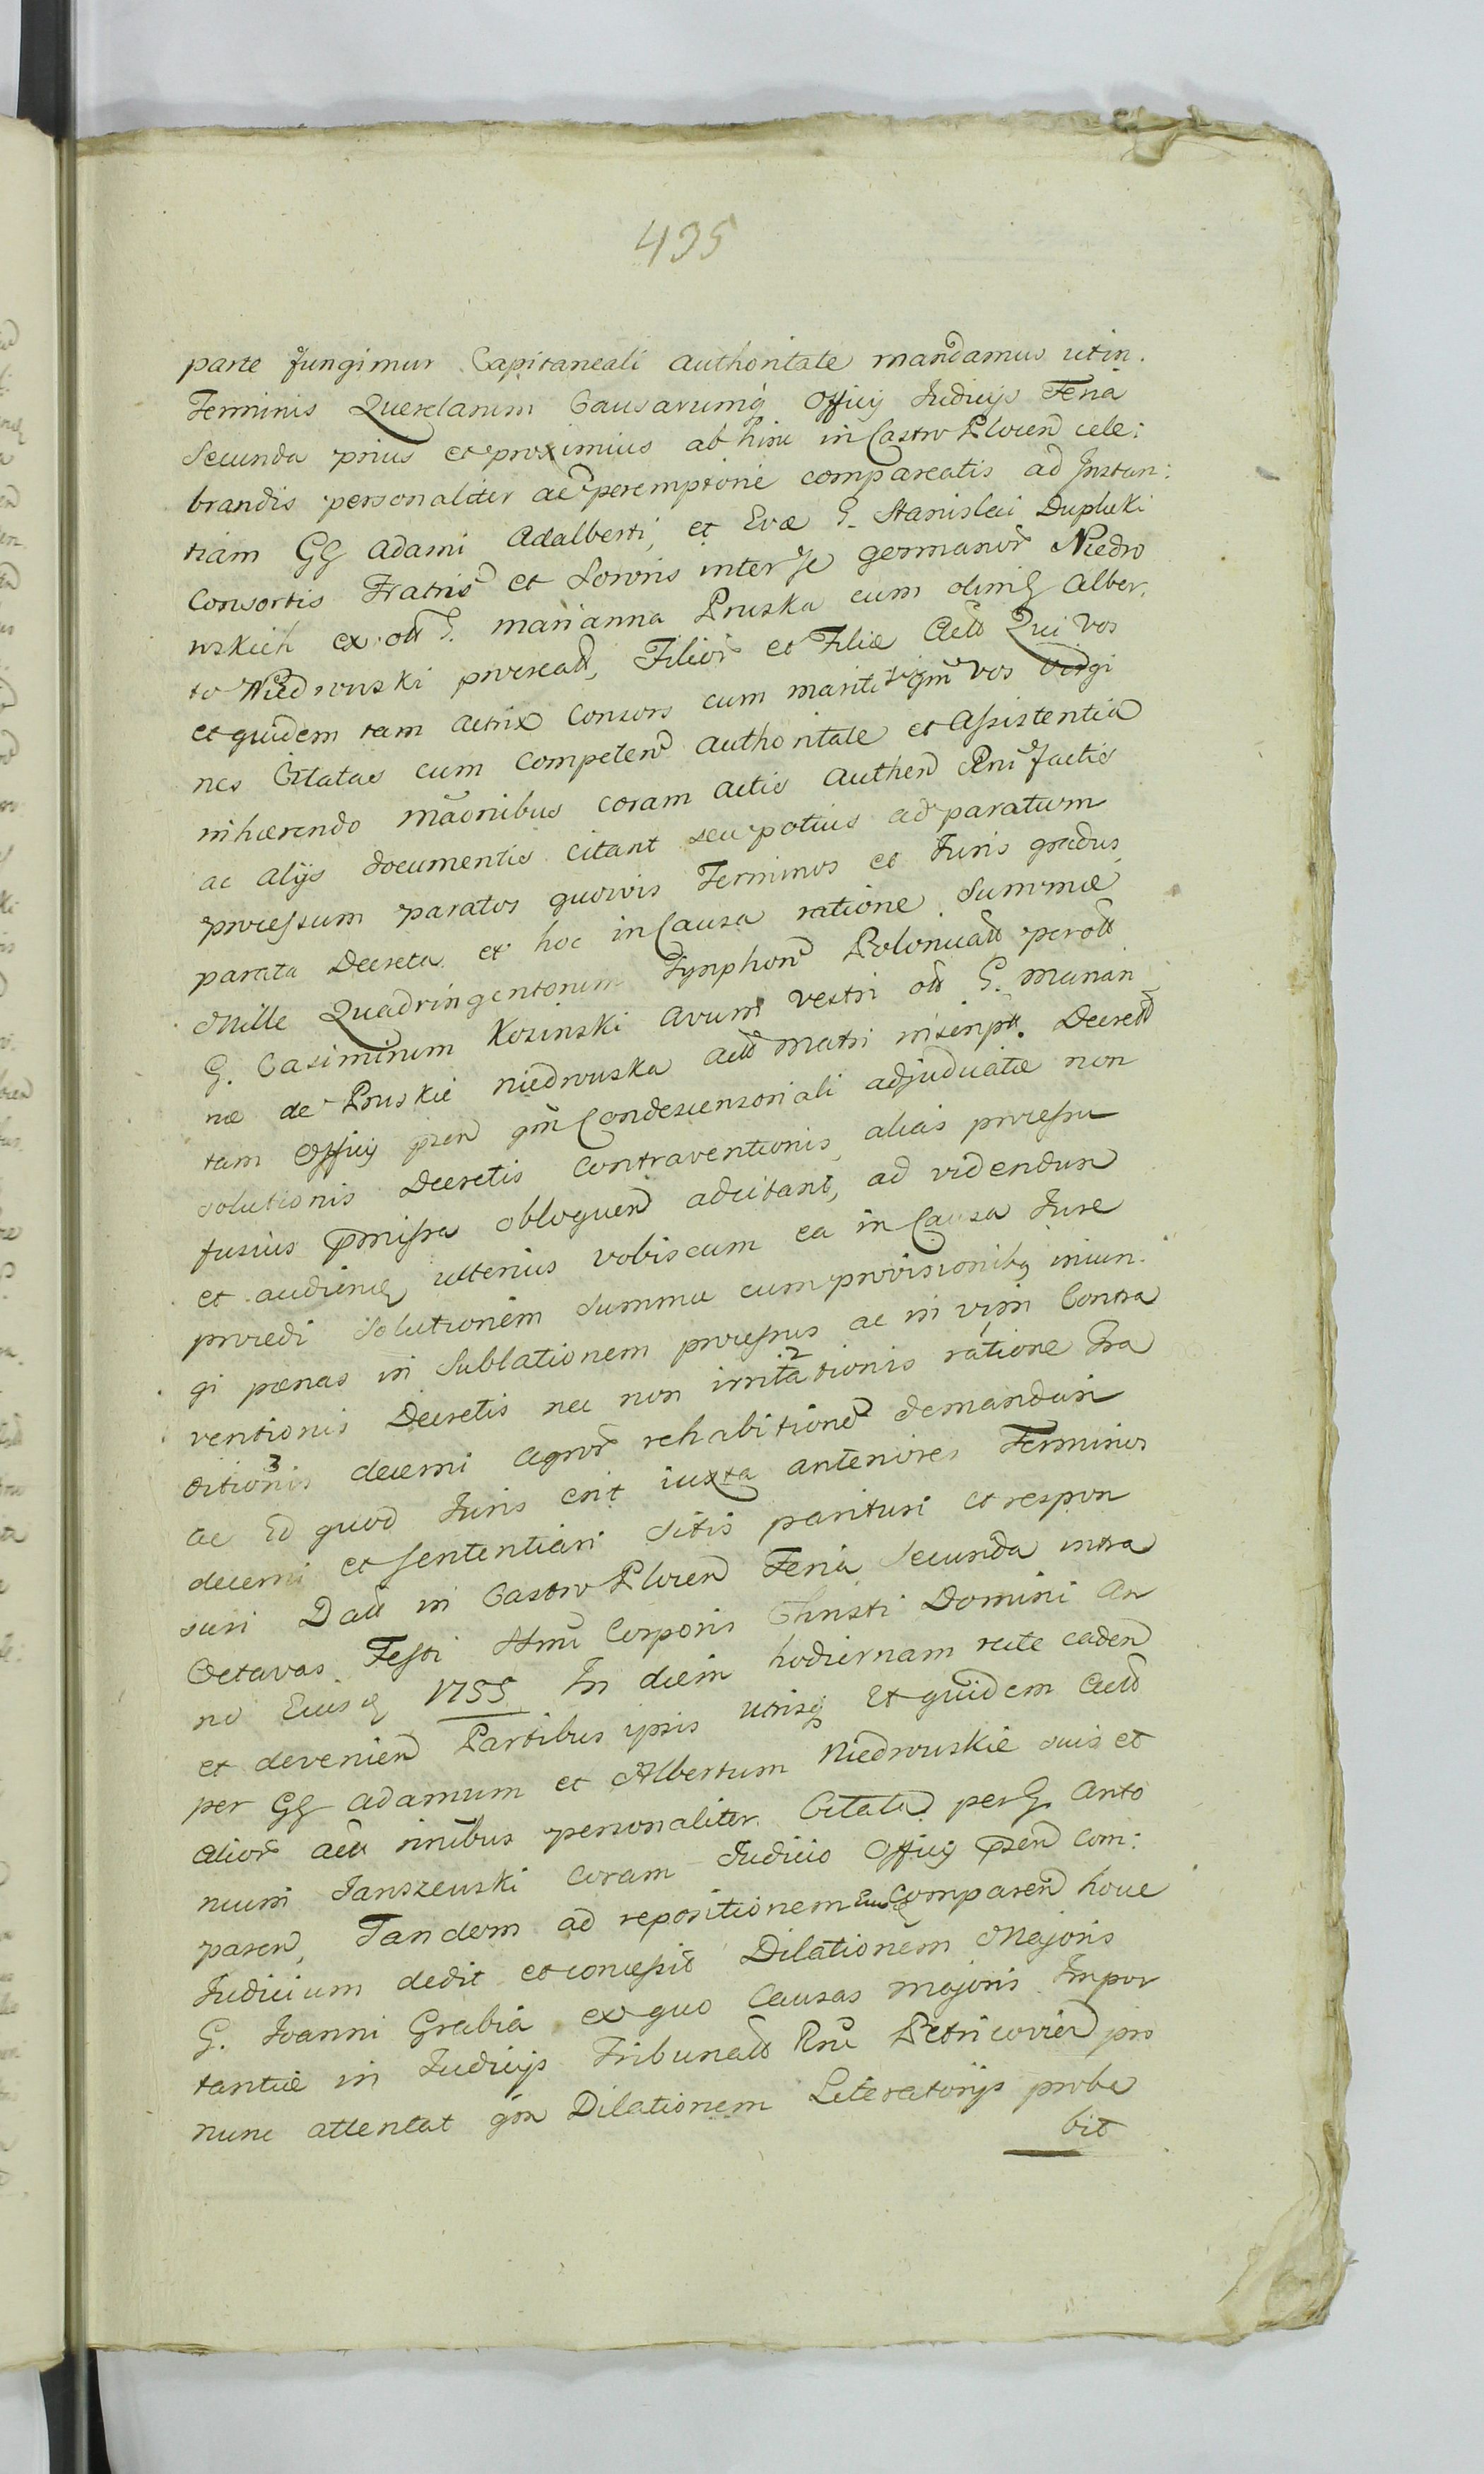 495
parte fungimur Capitaneali authoritate mandamus ut in
Terminis Querelarum Causarumq Officij Judicijs Feria
Secunda prius et proximius ab hinc in Castro Plocen cele:
brandis personaliter ac peremptorie compareatis ad Instan:
tiam GG Adami Adalberti, et Evæ G. Stanislai Duplicki
Consortis Fratris et Sororis inter se germanor Niedro
wskich ex olt G. Marianna Pruska cum olim G Alber
to Niedrowski procreatt, Filior et Filiæ Actt Qui vos
et quidem tam Actrix Consors cum mariti qm vos Virgi
nes Citatas cum Competen authoritate et Assistentia
inhærendo māonibus coram actis authen Pni factis
ac alijs documentis citant seu potius ad paratum
processum paratos quosvis Terminos et Juris gradus
parata Decreta et hoc in Causa ratione Summæ
Mille Quadringentorum Tynphon Polonicatt per olt
G. Casimirum Kosinski avum vestri olt G. Marian
næ de Pruskie Niedrowska actt Matri inscriptt. Decrett
tam Officij psen qm Condescensoriali adjudicatæ non
solutionis Decretis Contraventionis, alias processu
fusius pmissa obloquen adcitant, ad videndum
et audiend ulterius vobiscum ea in Causa Jure
procedi Solutionem Summæ cum provisionibq iniun
gi pænas in Sublationem processus ac in vim Contra
ventionis Decretis nec non irritationis ratione Tra
2
ditionis decerni agror rehabitione demandari
3
ac Id quod Juris erit iuxta anteriores Terminos
decerni et sententiari Sitis parituri et respon
suri Datt in Castro Plocen Feria Secunda intra
Octavas Festi Ssmi Corporis Christi Domini An
no Eiusq 1755 In diem hodiernam recte caden
et devenien Partibus ipsis utrisq Et quidem Actt
per GG Adamum et Albertum Niedrowskie suis et
alior actt nnibus personaliter. Citatt per G. Anto
nium Janszewski Coram Judicio Officij psen Com:
paren, Tandem ad repositionem Eius Comparen hocce
Judicium dedit et concessit Dilationem Majoris
G. Joanni Grabia ex quo Causas Majoris Impor
tantiæ in Judicijs Tribunatt Rni Petricovien pro
nunc attentat qm Dilationem Literatorijs proba
bit